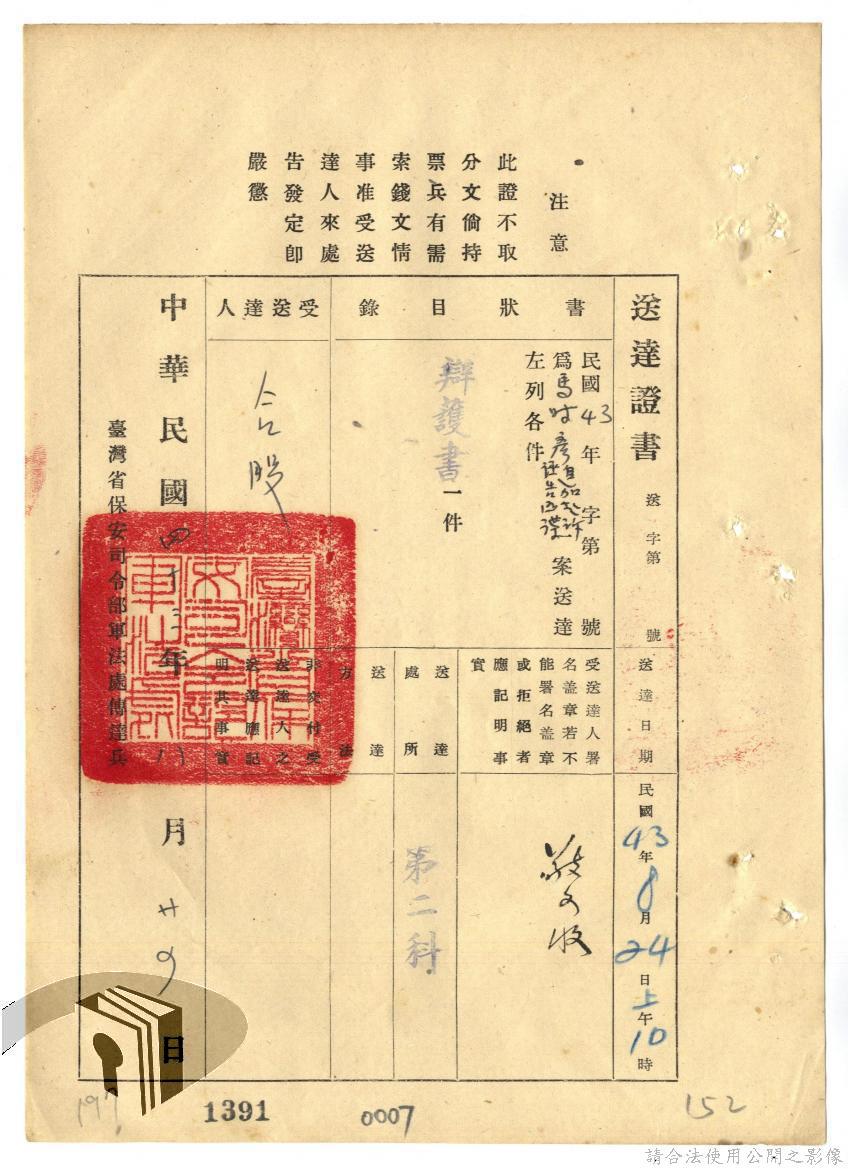 注意
此證不取
分文倘持
票兵有需
索錢文情
事准受送
達人來處
告發定即
嚴懲
送達證書
送字第 號
送達日期
民國43年8月24日上午10時
書狀目錄
民國43年 字第 號
為馬時彥 案送達
左列各件
辯護書一件
受送達人署
名蓋章若不
能署名蓋章
或拒絕者
應記明事
實
送達處所
第二科
送達方法
受送達人
合股
非交付受
送達人之
送達應記
明其事實
中華民國四十三年八月廿四日
臺灣省保安司令部軍法處傳達兵
197
1391
0007
152
請合法使用公開之影像